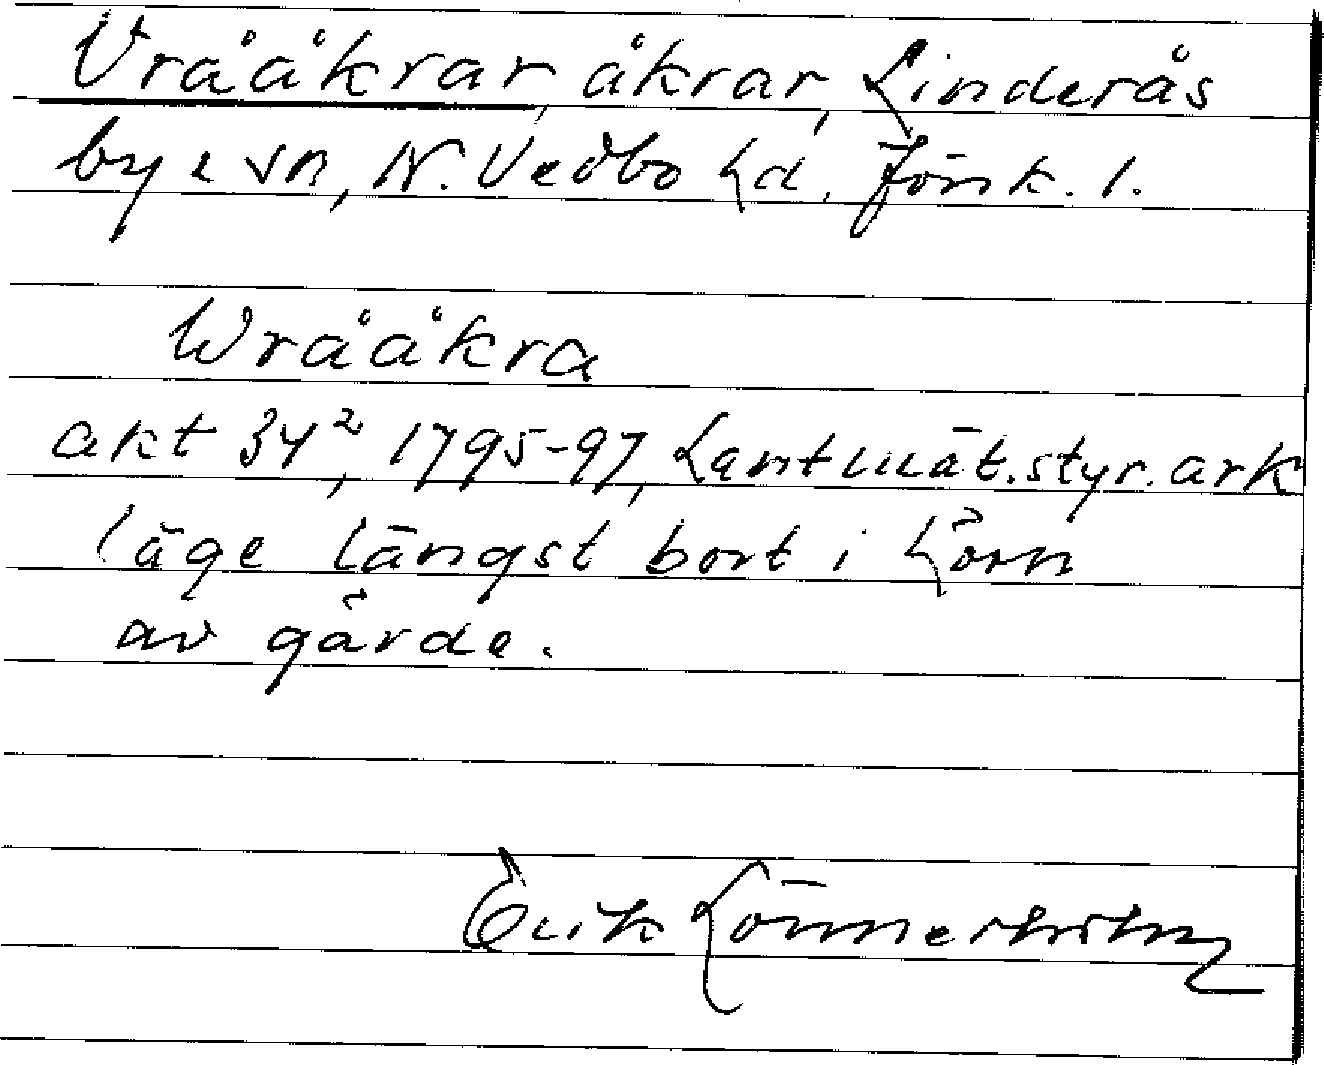 Vrååkrar, åkrar, Linderås
by & sn, N. Vedbo hd. Jönk. l.
Wrååkra
akt 34², 1795-97, Lantmät.styr. ark
läge längst bort i hörn
av gärde.
Erik Lönnerholm